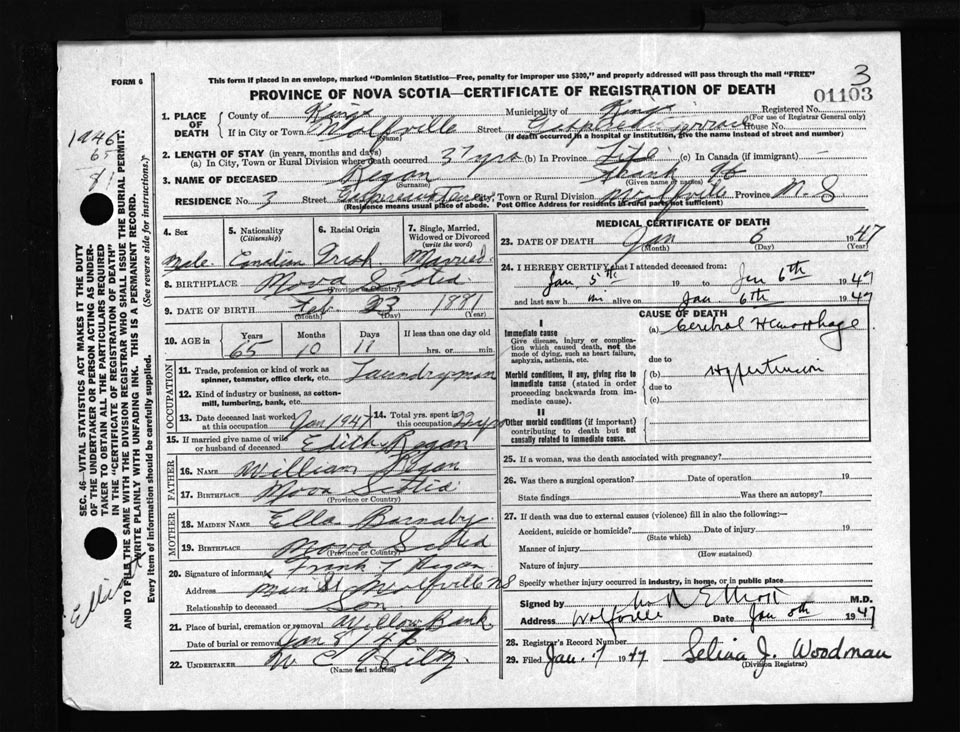 FORM 6
This form if placed in an envelope, marked "Dominion Statistics—Free, penalty for improper use $300," and properly addressed will pass through the mail "FREE"
3
PROVINCE OF NOVA SCOTIA—CERTIFICATE OF REGISTRATION OF DEATH
01103
1. PLACE OF DEATH
County of Kings
Municipality of Kings
Registered No.
(For use of Registrar General only)
If in City or Town Wolfville
(Name)
Street
House No.
(If death occurred in a hospital or institution, give the name instead of street and number)
2. LENGTH OF STAY (in years, months and days)
(a) In City, Town or Rural Division where death occurred 37 yrs (b) In Province Life (c) In Canada (if immigrant) —
3. NAME OF DECEASED Regan
(Surname)
(Given name or names)
RESIDENCE No. 3 Street City, Town or Rural Division Wolfville Province N. S
(Residence means usual place of abode. Post Office Address for residents in rural parts not sufficient)
4. Sex
Male
5. Nationality
(Citizenship)
Canadian
6. Racial Origin
Irish
7. Single, Married, Widowed or Divorced
(write the word)
Married
8. BIRTHPLACE Nova Scotia
(Province or Country)
9. DATE OF BIRTH Feb 23 1881
(Month) (Day) (Year)
10. AGE in
Years Months Days If less than one day old
65 10 11 hrs. or min.
OCCUPATION
11. Trade, profession or kind of work as spinner, teamster, office clerk, etc. Laundryman
12. Kind of industry or business, as cotton-mill, lumbering, bank, etc.
13. Date deceased last worked at this occupation Jan 1947
14. Total yrs. spent in this occupation 22 yrs
15. If married give name of wife or husband of deceased Edith Regan
FATHER
16. NAME William Regan
17. BIRTHPLACE Nova Scotia
(Province or Country)
MOTHER
18. MAIDEN NAME Ella Barnaby
19. BIRTHPLACE Nova Scotia
(Province or Country)
20. Signature of informant Frank T Regan
Address Main St Wolfville NS
Relationship to deceased Son
21. Place of burial, cremation or removal Willow Bank
Date of burial or removal Jan 8/
22. UNDERTAKER W C
(Name and address)
MEDICAL CERTIFICATE OF DEATH
23. DATE OF DEATH Jan 6 1947
(Month) (Day)
24. I HEREBY CERTIFY that I attended deceased from:
Jan. 5th 19 to Jan 6th 1947
and last saw him alive on Jan. 6th 1947
CAUSE OF DEATH
I
Immediate cause
Give disease, injury or complication which caused death, not the mode of dying, such as heart failure, asphyxia, asthenia, etc.
(a) Cerebral Hemorrhage
due to
Morbid conditions, if any, giving rise to immediate cause (stated in order proceeding backwards from immediate cause).
(b) Hypertension
due to
(c)
II
Other morbid conditions (if important) contributing to death but not causally related to immediate cause.
25. If a woman, was the death associated with pregnancy?
26. Was there a surgical operation? Date of operation 19
State findings Was there an autopsy?
27. If death was due to external causes (violence) fill in also the following:—
Accident, suicide or homicide? Date of injury 19
(State which)
Manner of injury
(How sustained)
Nature of injury
Specify whether injury occurred in industry, in home, or in public place
Signed by Elliott M.D.
Address Wolfville Date Jan 8th 1947
28. Registrar's Record Number
29. Filed Jan. 7 1947 Selina J. Woodman
(Division Registrar)
SEC. 46—VITAL STATISTICS ACT MAKES IT THE DUTY
OF THE UNDERTAKER OR PERSON ACTING AS UNDER-
TAKER TO OBTAIN ALL THE PARTICULARS REQUIRED
IN THE "CERTIFICATE OF REGISTRATION OF DEATH"
AND TO FILE THE SAME WITH THE DIVISION REGISTRAR WHO SHALL ISSUE THE BURIAL PERMIT.
WRITE PLAINLY WITH UNFADING INK. THIS IS A PERMANENT RECORD.
Every item of information should be carefully supplied. (See reverse side for instructions.)
1946
65
81